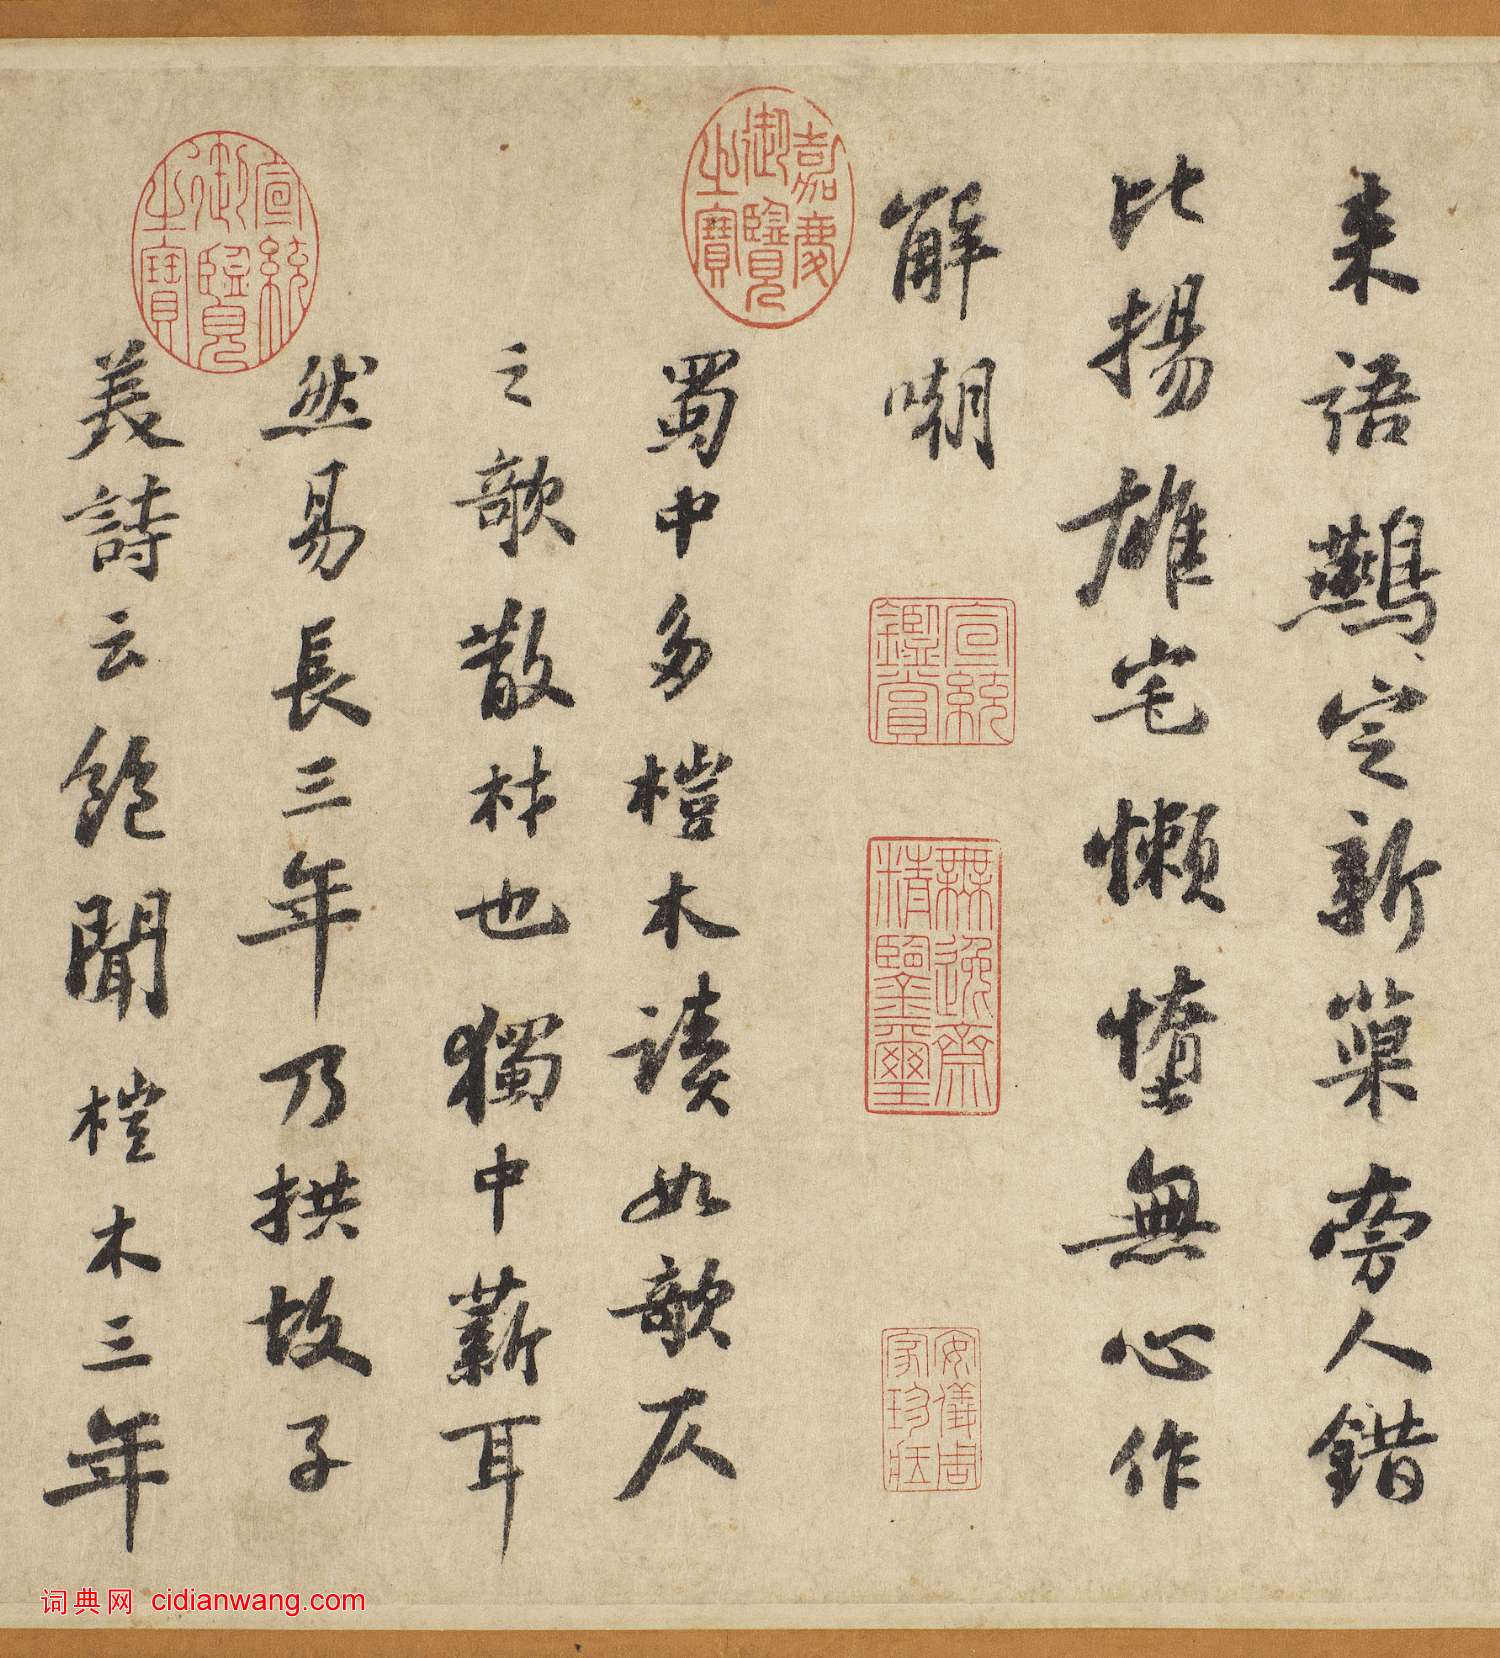 来語鷰定新巢旁人錯
比揚雄宅懶惰無心作
解嘲
蜀中多榿木讀如欹仄
之欹散材也獨中薪耳
然易長三年乃拱故子
美詩云飽聞榿木三年
嘉慶御覽之寶
宣統鑑賞
無逸齋精鑒璽
安儀周家珍藏
宣統御覽之寶
词典网 cidianwang.com